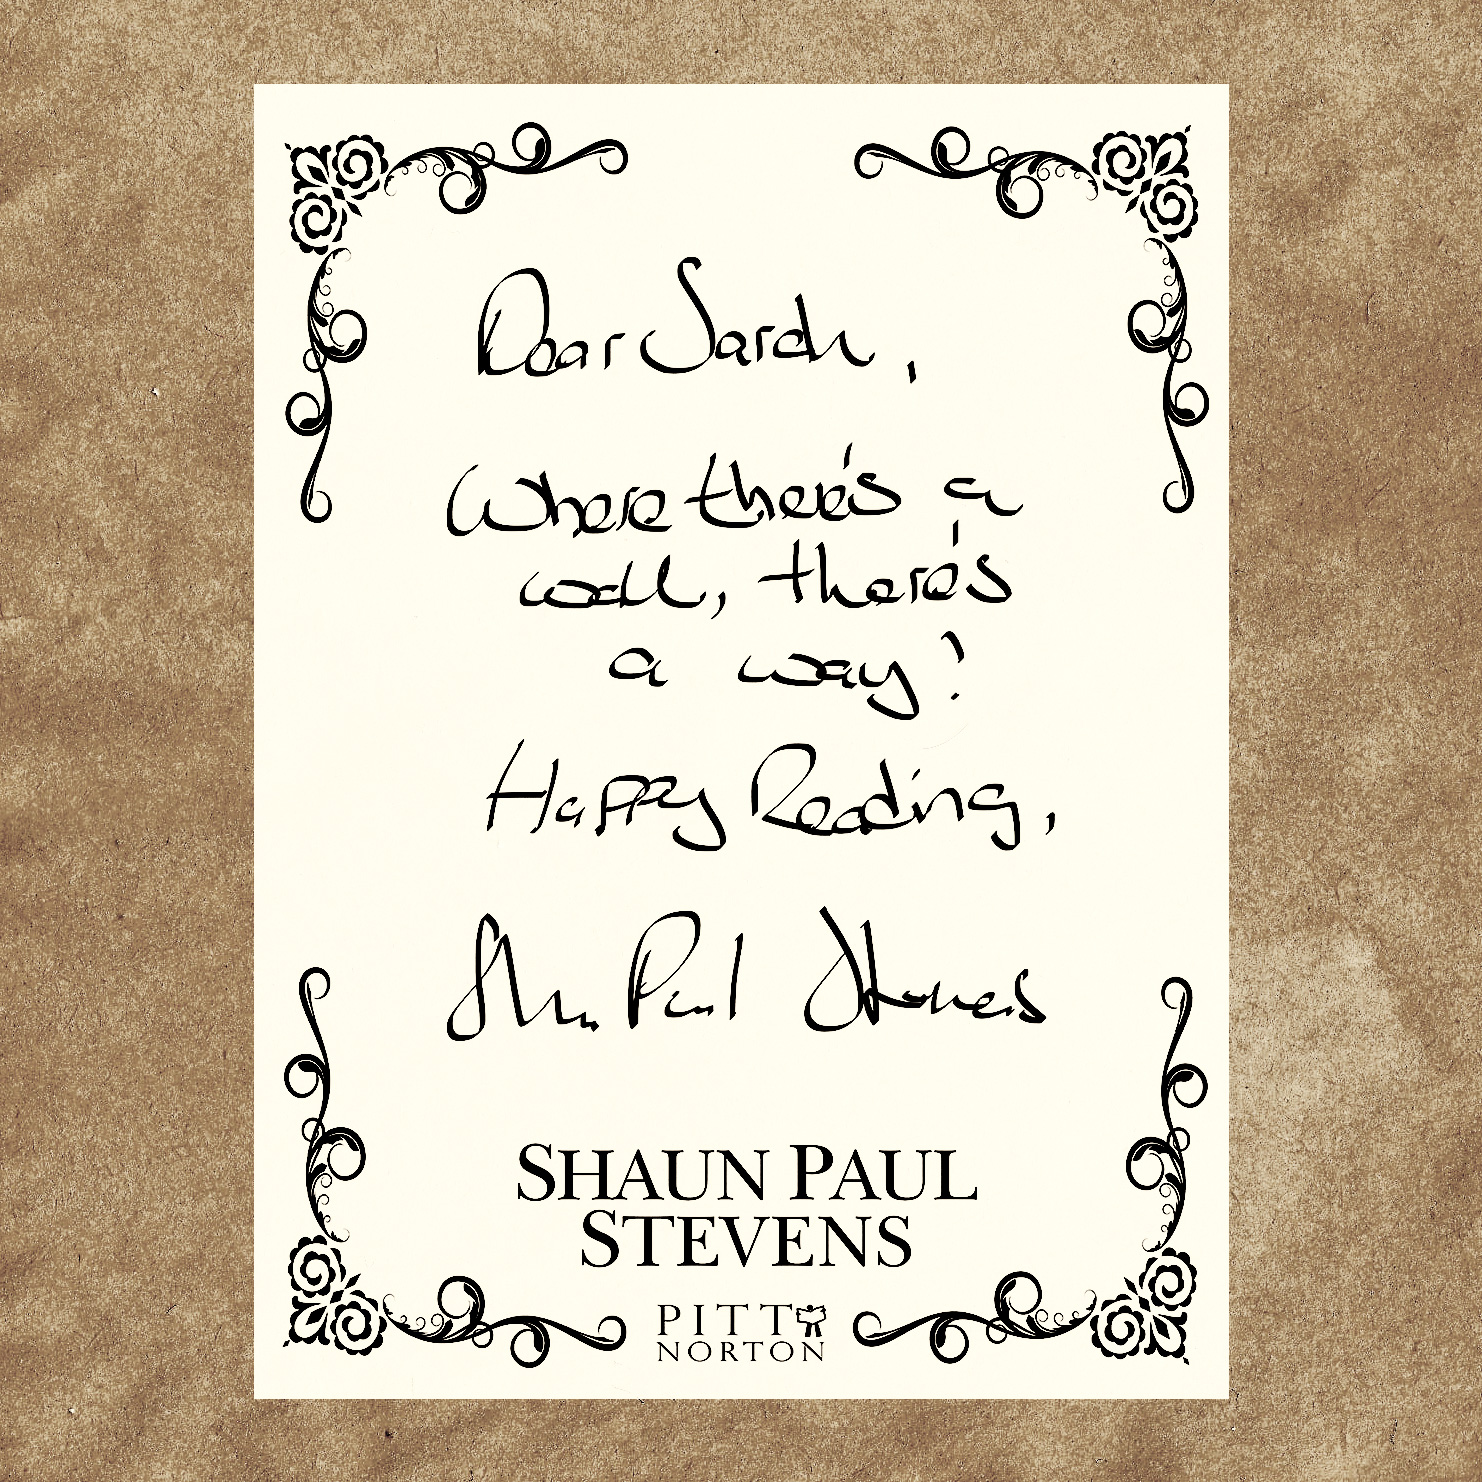 Dear Sarah,
Where there's a
wall, there's
a way!
Happy Reading,
Shaun Paul Stevens
SHAUN PAUL
STEVENS
PITT
NORTON